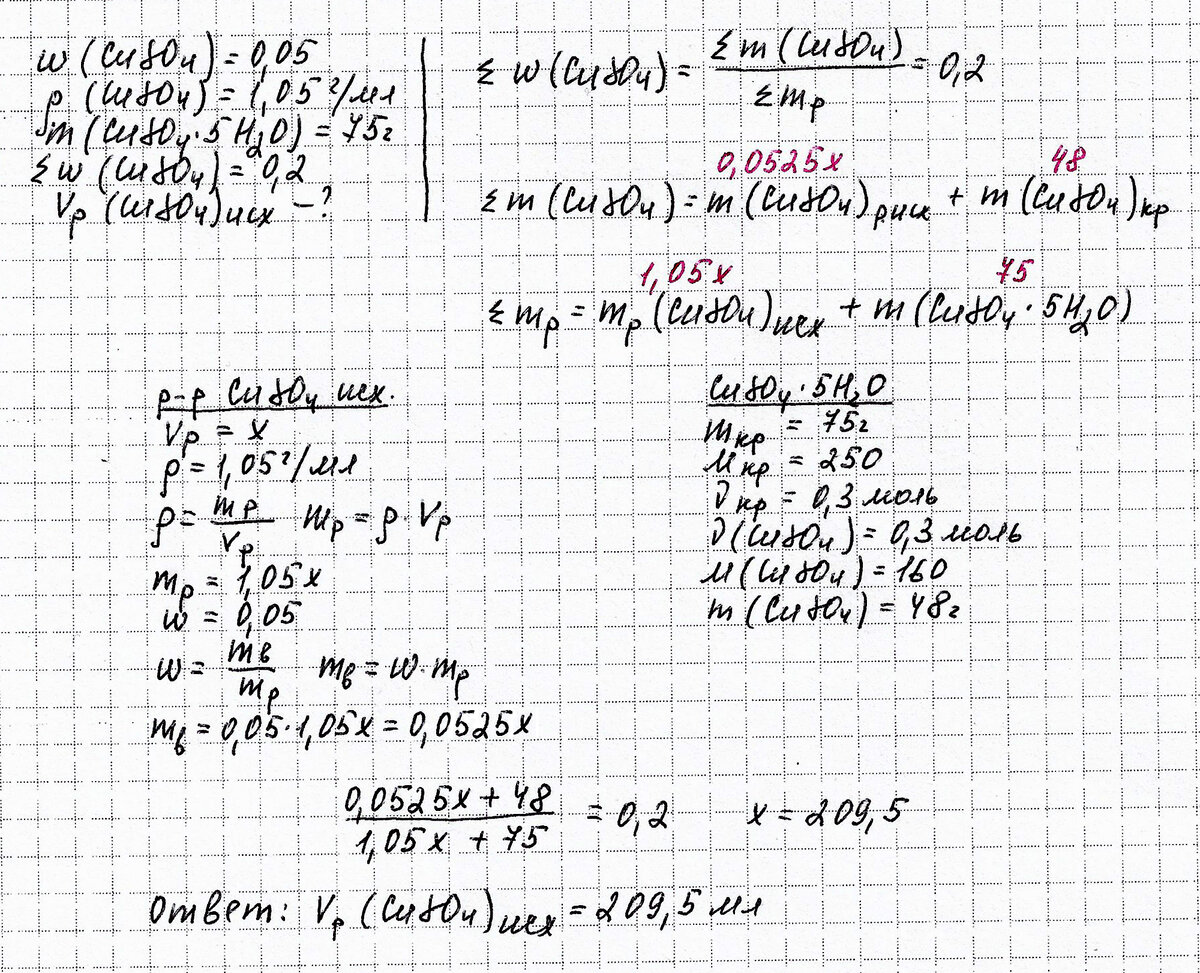 w (CuSO₄) = 0,05
ρ (CuSO₄) = 1,05 г/мл
m (CuSO₄·5H₂O) = 75г
Σw (CuSO₄) = 0,2
Vр (CuSO₄)исх – ?
Σ w (CuSO₄) = Σ m (CuSO₄) / Σ mр = 0,2
0,0525x 48
Σ m (CuSO₄) = m (CuSO₄)р исх + m (CuSO₄)кр
1,05x 75
Σ mр = mр (CuSO₄)исх + m (CuSO₄·5H₂O)
р-р CuSO₄ исх.
Vр = x
ρ = 1,05 г/мл
ρ = mр / Vр mр = ρ · Vр
mр = 1,05x
w = 0,05
w = mв / mр mв = w · mр
mв = 0,05·1,05x = 0,0525x
CuSO₄·5H₂O
mкр = 75г
Mкр = 250
νкр = 0,3 моль
ν (CuSO₄) = 0,3 моль
M (CuSO₄) = 160
m (CuSO₄) = 48г
0,0525x + 48 / 1,05x + 75 = 0,2 x = 209,5
Ответ: Vр (CuSO₄)исх = 209,5 мл